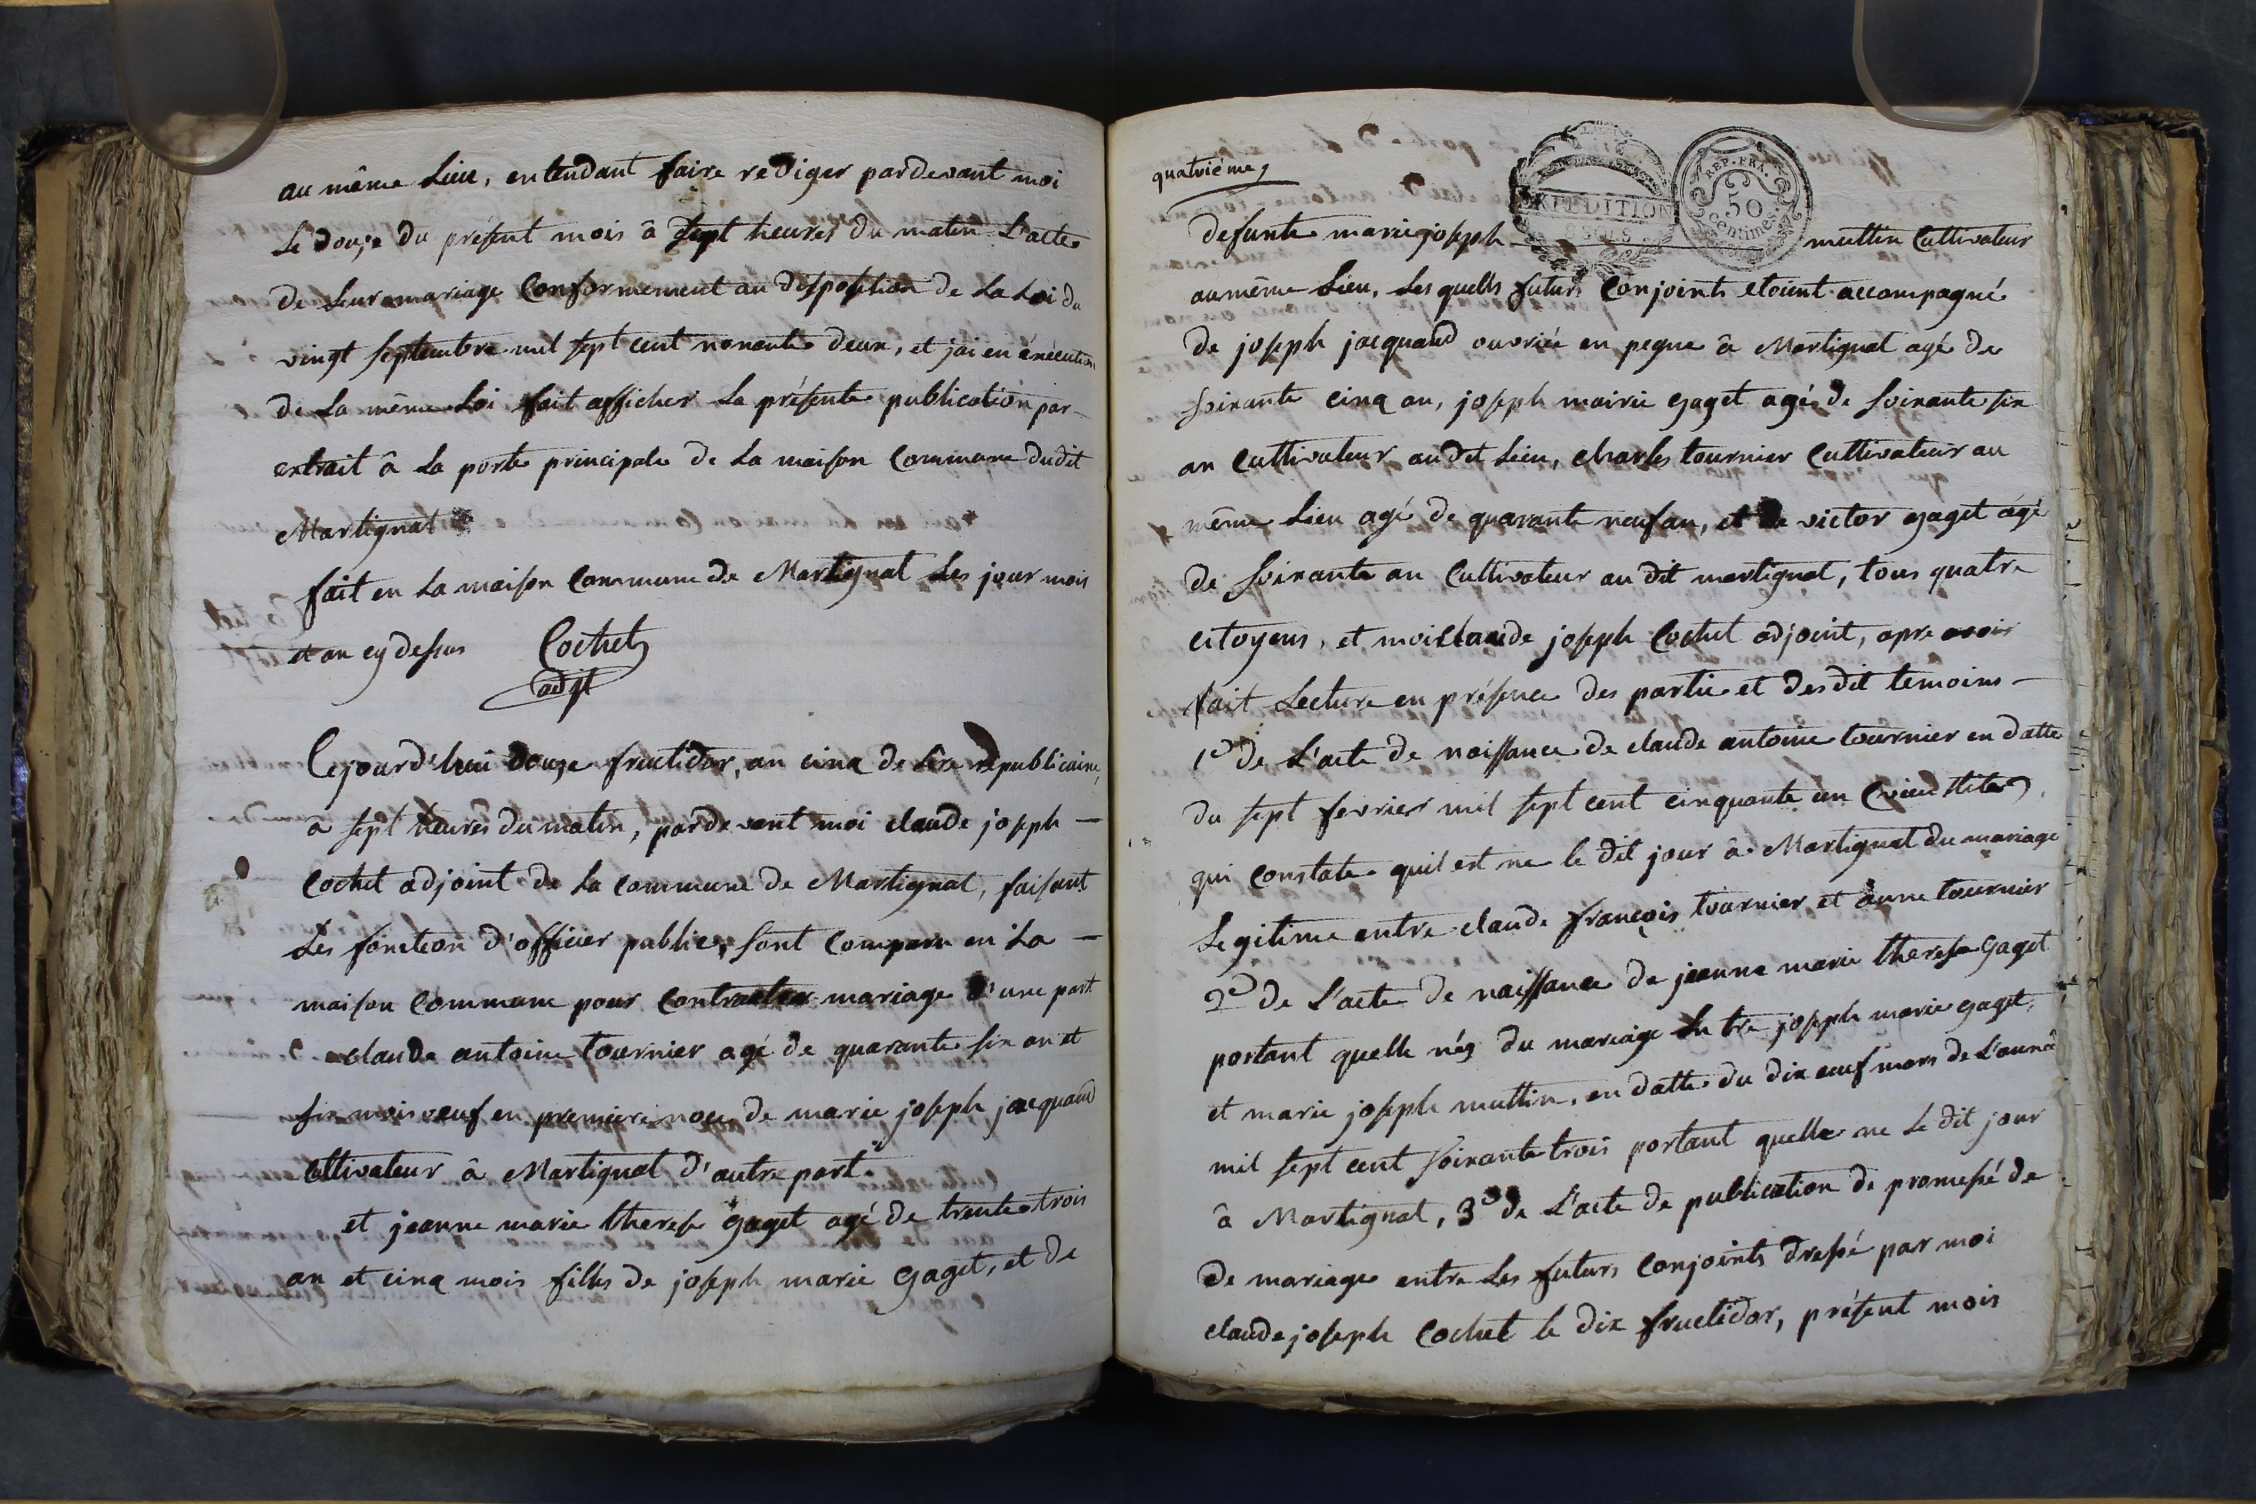 au même Lieu, entendant faire rediger pardevant moi
Le douze du présent mois â sept heures du matin L'acte
de Leur mariage Conformement au disposition de La Loi du
vingt septembre mil sept cent nonante deux, et jai en éxécution
de La même Loi fait afficher La présente publication par-
extrait â La porte principale de La maison Commune dudit
Martignat
fait en La maison Commune de Martignat Les jour mois
et an cy dessus Cochet
adjt
Cejourd'hui douze fructidor, an cinq de L'ére republicaine,
â sept heures du matin, pardevant moi claude joseph —
Cochet adjoint de La Commune de Martignat, faisant
Les fonction d'officier public, sont Comparu en La —
maison Commune pour Contracter mariage d'une part
claude antoine tournier agé de quarante six an et
six mois veuf en premiere noce de marie joseph jacquand
Cltivateur â Martignat d'autre part
et jeanne marie therese gaget agé de trente trois
an et cinq mois filles de joseph marie gaget, et de
quatriéme,
EXPEDITION
REP. FRA.
50
Centimes
defunte marie joseph muttin Cultivateur
au même Lieu, Les quells futurs Conjoints etoient accompagné
de joseph jacquand ouvrié en pegne â Martignat agé de
soixante cinq an, joseph mairie gaget agé de soixante six
an Cultivateur audit Lieu, charles tournier Cultivateur au
même Lieu agé de quarante neuf an, et de victor gaget agé
de soixante an Cultivateur au dit martignat, tous quatre
citoyens, et moi claude joseph Cochet adjoint, apre avoir
fait Lecture en présence des partie et des dit temoins —
1º de L'acte de naissance de claude antoine tournier en datte
du sept fevrier mil sept cent cinquante un (vieu stile)
qui constate quil est ne le dit jour â Martignat du mariage
Legitime entre claude françois tournier et anne tournier
2º de L'acte de naissance de jeanne marie therese gaget
portant quelle néz du mariage Entre joseph marie gaget,
et marie joseph muttin, en datte du dix neuf mars de L'année
mil sept cent soixante trois portant quelle ne Le dit jour
â Martignat, 3º de L'acte de publication de promessé de
de mariage entre Les futurs Conjoints dressé par moi
claude joseph Cochet le dix fructidor, présent mois